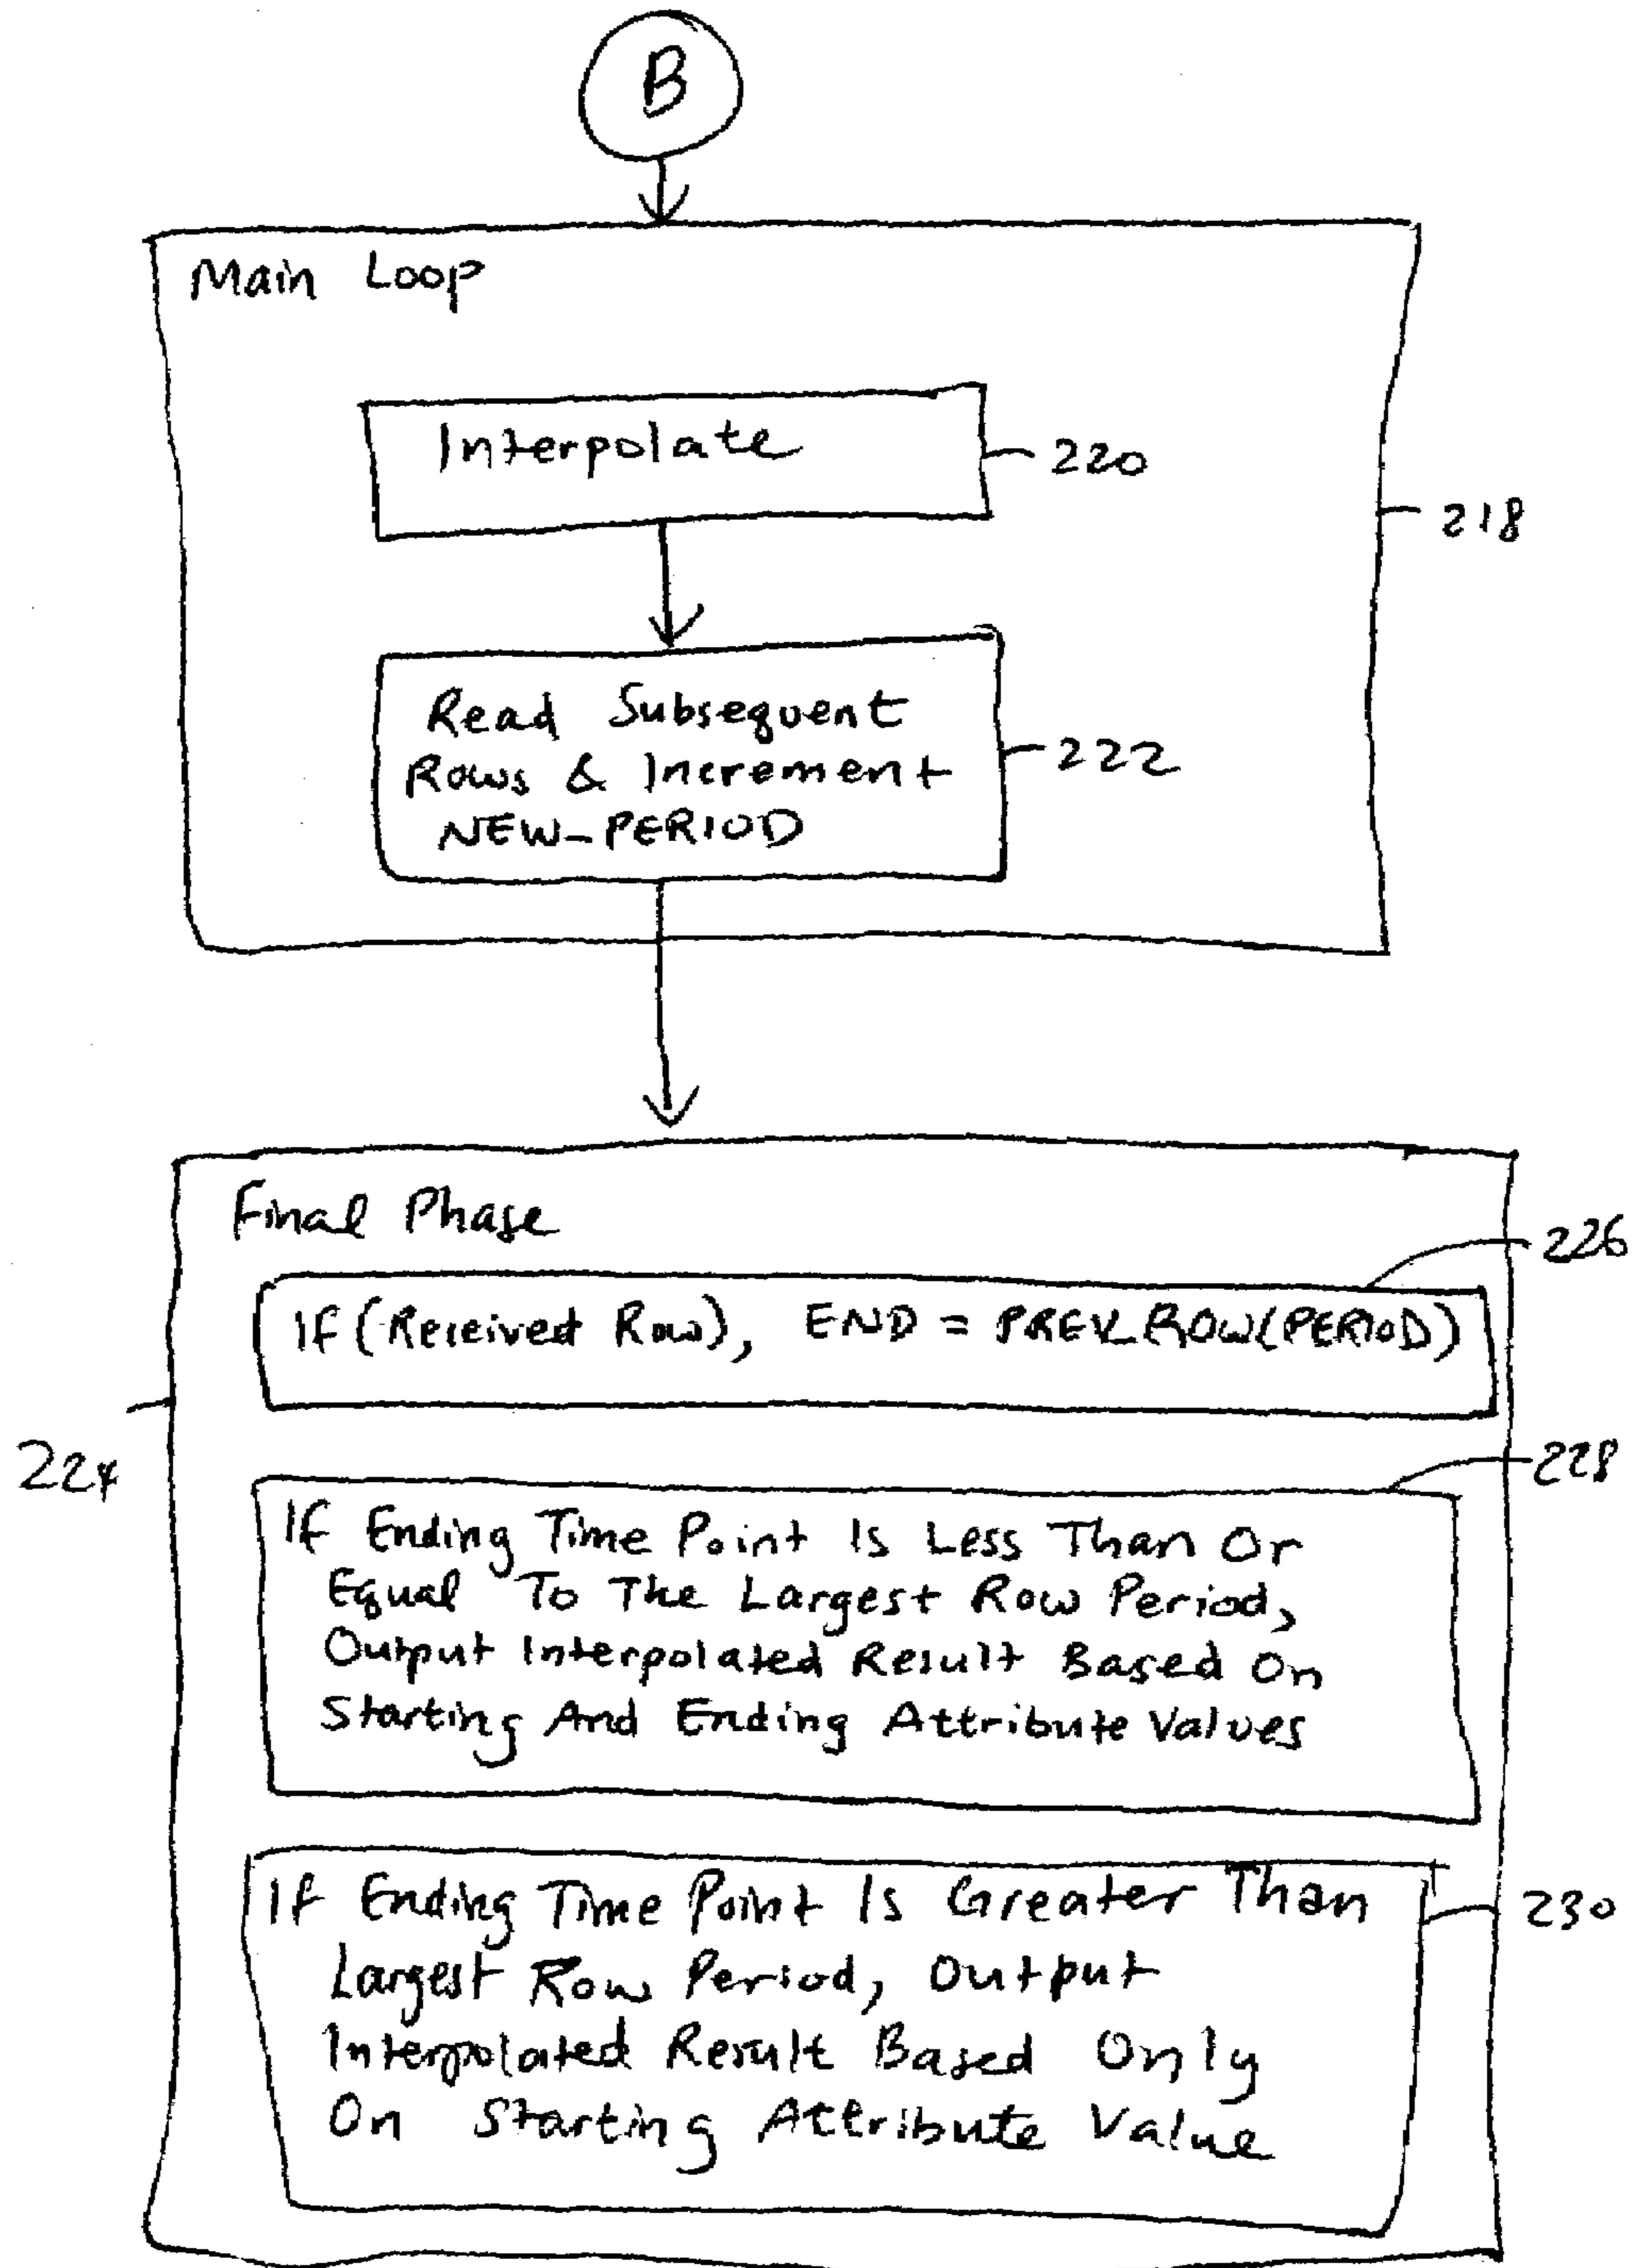 B
Main Loop
Interpolate
220
218
Read Subsequent
Rows & Increment
NEW_PERIOD
222
Final Phase
226
If (Received Row), END = PREV_ROW(PERIOD)
224
228
If Ending Time Point Is Less Than Or
Equal To The Largest Row Period,
Output Interpolated Result Based On
Starting And Ending Attribute Values
If Ending Time Point Is Greater Than
230
Largest Row Period, Output
Interpolated Result Based Only
On Starting Attribute Value